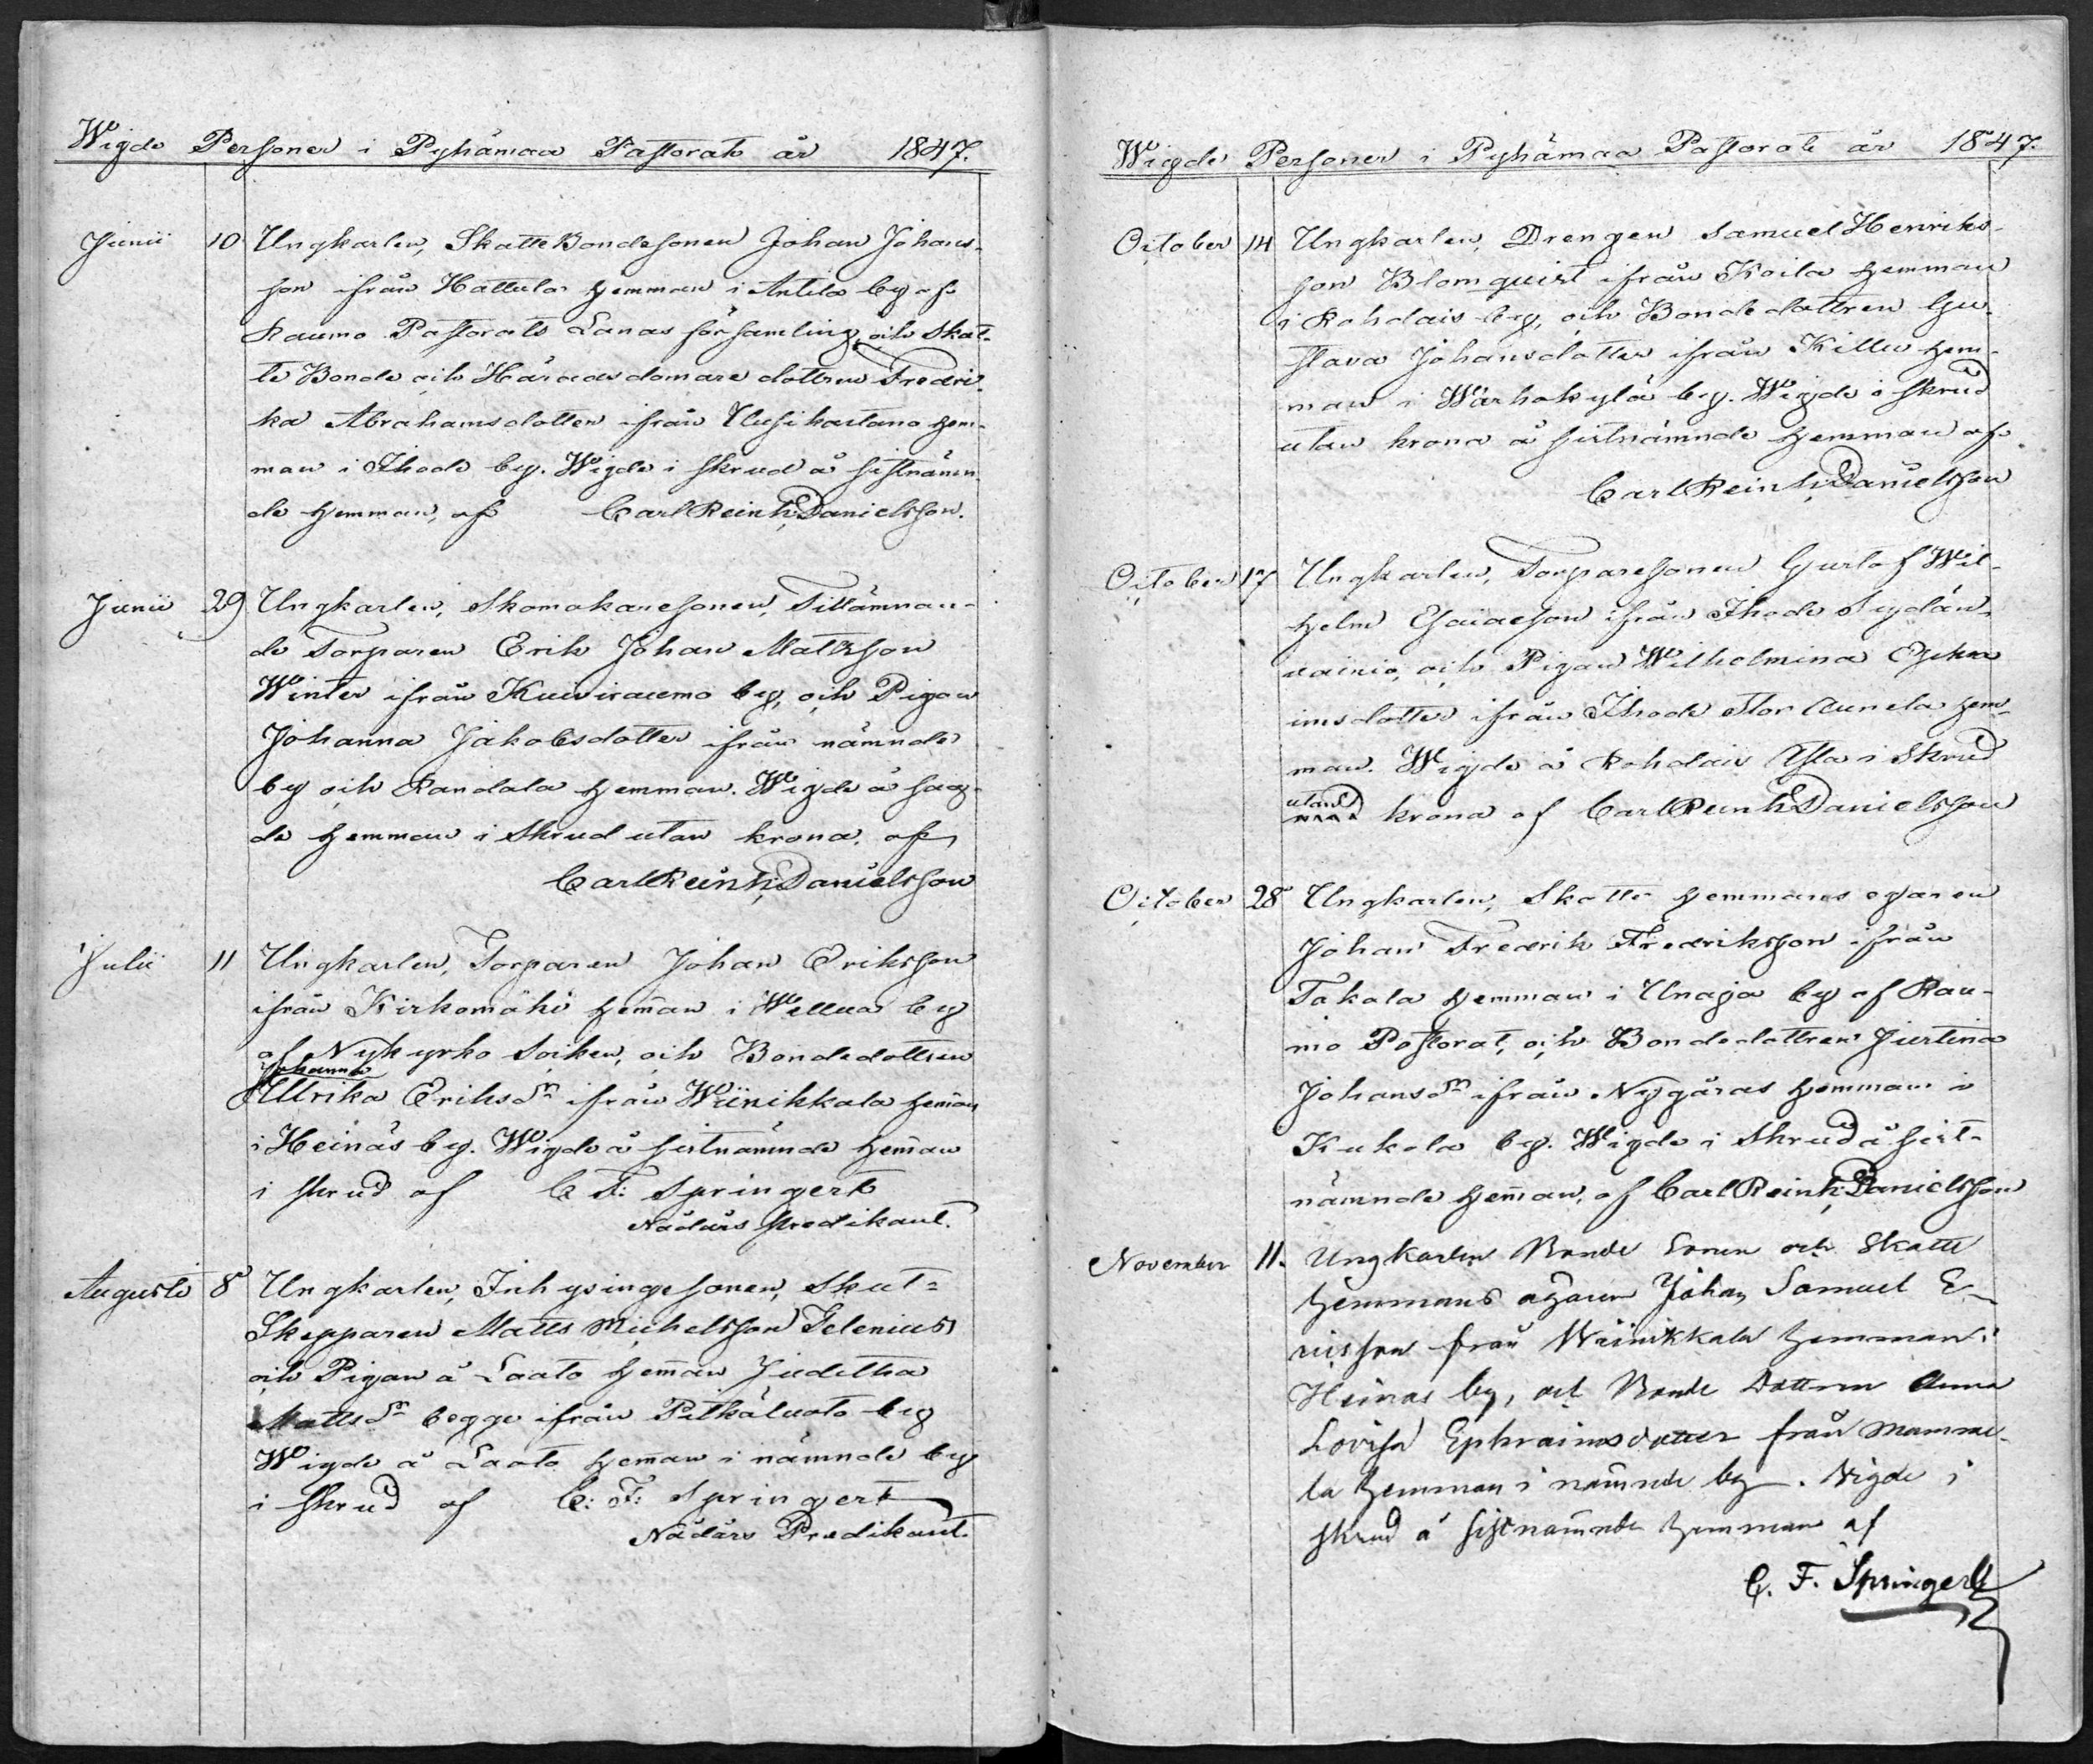 Wigde Personer i Pyhämaa Pastorat år 1847.
Junii 10 Ungkarlen, SkatteBondesonen Johan Johans-
son ifrån Hattula hemman i Antila by af
Raumo Pastorats Lanas församling, och Skat-
te Bonde och Häradsdomare dottren Fredri-
ka Abrahamsdotter ifrån Uusikartano hem-
man i Ihode by. Wigde i skrud å sistnämn-
de hemman, af Carl Reinh: Danielsson.
Junii 29 Ungkarlen, Skomakaresonen, Tillämnan-
de Torparen Erik Johan Mattsson
Winter ifrån Kuiviraumo by, och Pigan
Johanna Jakobsdotter ifrån nämnde
by och Randala hemman. Wigde å sag-
de hemman i Skrud utan krona, af
Carl Reinh: Danielsson
Julii 11 Ungkarlen, Torparen Johan Eriksson
ifrån Kirkomäki hem̄an i Wellua by
af Nykyrko Socken, och Bondedottren
Johanna
Ullrika Eriksdr ifrån Wiinikkala hem̄an
i Heinäs by. Wigde å sistnämnde hem̄an
i skrud af C F: Springert
Nådårs Predikant.
Augusti 8 Ungkarlen, Inhysingesonen, Skut-
Skepparen Matts Michelsson Telenius
och Pigan å Laato hem̄an Juditha
Mattsdr begge ifrån Pitkäluoto by
Wigde å Laato hem̄an i nämnde by
i skrud af C: F: Springert
Nådårs Predikant.
Wigde Personer i Pyhämaa Pastorat år 1847.
October 14 Ungkarlen, Drengen Samuel Henriks-
son Blomquist ifrån Koila hemman
i Rohdais by, och Bondedottren Gu-
stava Johansdotter ifrån Killu hem-
man i Warhokylä by. Wigde i skrud
utan krona å sistnämnde hemman af
Carl Reinh: Danielsson
October 17 Ungkarlen, Torparesonen Gustaf Wil-
helm Esaiasson ifrån Ihode Sydän-
vainio, och Pigan Wilhelmina
imsdotter ifrån Ihode Stor Aunela hem-
man. Wigde å Rohdais Ylla i Skrud
utan
krona af Carl Reinh Danielsson
October 28 Ungkarlen, Skatte hemmans egaren
Johan Fredrik Fredriksson ifrån
Takala hemman i Unaja by af Rau-
mo Pastorat, och Bondedottren Justina
Johansdr ifrån Nygåras hemman i
Kukola by. Wigde i Skrud å sist-
nämnde hem̄an, af Carl Reinh: Danielsson
November 11. Ungkarlen Bonde Sonen och Skatte
hemmans ägaren Johan Samuel E-
ricsson från Wiinikkala hemman i
Heinäs by, och Bonde Dottren Anna
Lovisa Ephraimsdotter från Mamme-
la hemman i nämnde by. Wigde i
skrud å sistnämnde hemman af
C. F. Springert